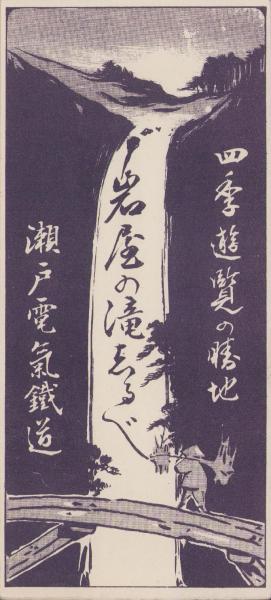 四季遊覧の勝地
岩屋の滝志るべ
瀬戸電氣鐵道